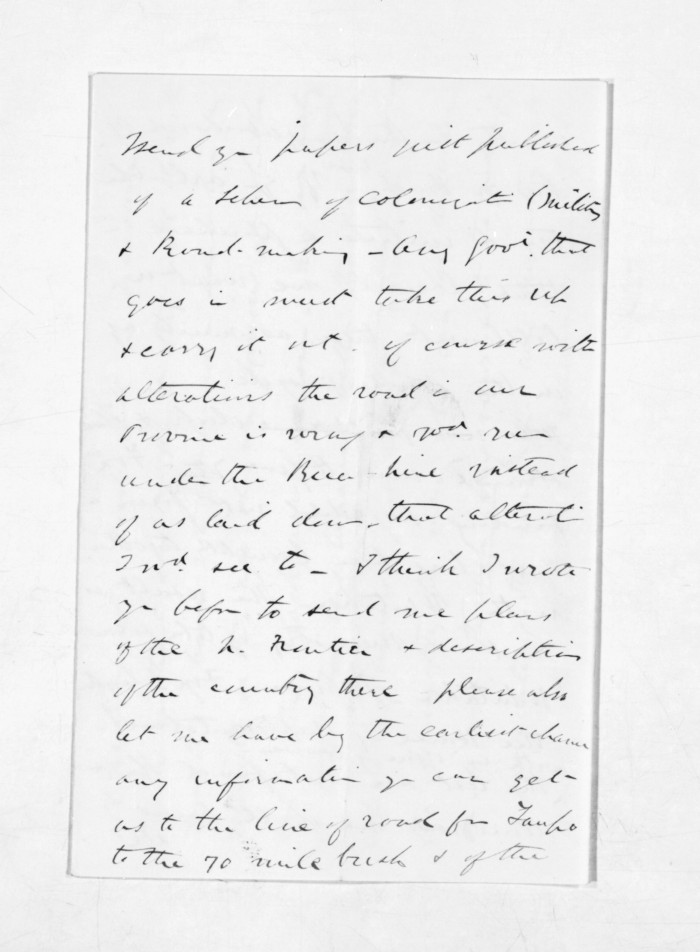 I send yr papers just published
of a Scheme of Colonizat (Military
& Road-making - Any Govt. that
goes in must take this up
& carry it out - of course with
alterations the road in our
Province is wrong & wd. run
under the instead
of as laid down - that alterati
I wd. see to - I think I wrote
yr before to send me plans
of the N. Frontier & description
of the country there please also
let me have by the earliest chance
any informatin yr can get
as to the line of road fm Taupo
to the 70 mile bush & of the